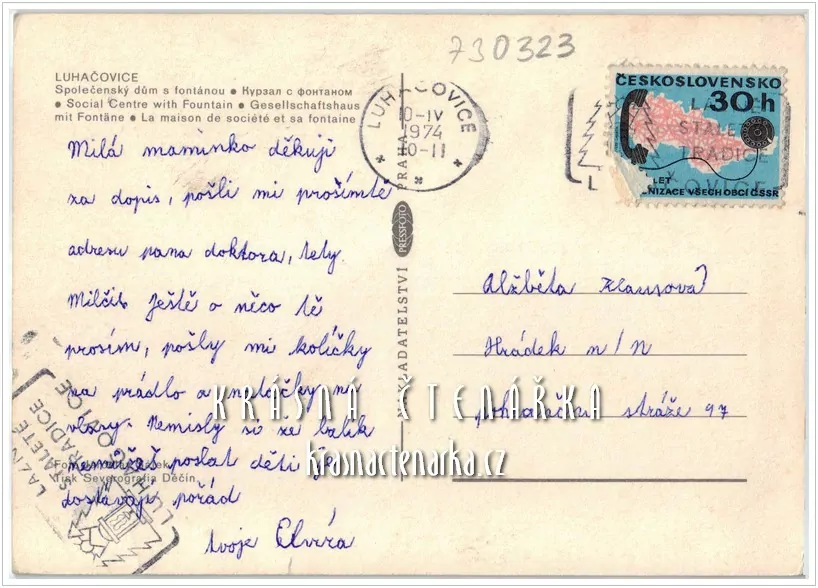 730323
LUHAČOVICE
Společenský dům s fontánou ● Курзал с фонтаном
● Social Centre with Fountain ● Gesellschaftshaus
mit Fontäne ● La maison de société et sa fontaine
Milá maminko děkuji
za dopis, pošli mi prosímtě
adresu pana doktora, tety
Milči. Ještě o něco tě
prosím, pošly mi kolíčky
na prádlo a natáčky na
vlasy. Nemisly si že balík
nemůžeš poslat děti je
dostávají pořád
tvoje Elvíra
Tisk Severografia Děčín
LÁZNĚ
STALETÉ
TRADICE
LUHAČOVICE
NAKLADATELSTVÍ PRESSFOTO PRAHA
LUHAČOVICE
10-IV
1974
10-11
ČESKOSLOVENSKO
30h
LET
NIZACE VŠECH OBCÍ ČSSR
STALETÉ
TRADICE
Alžběta Klausová
Hrádek n/N
pohraniční stráže 97
KRÁSNÁ ČTENÁŘKA
krasnactenarka.cz